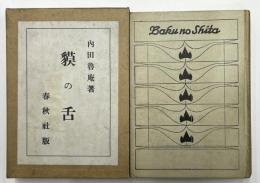 内田魯庵著
貘の舌
春秋社版
Baku no Shita